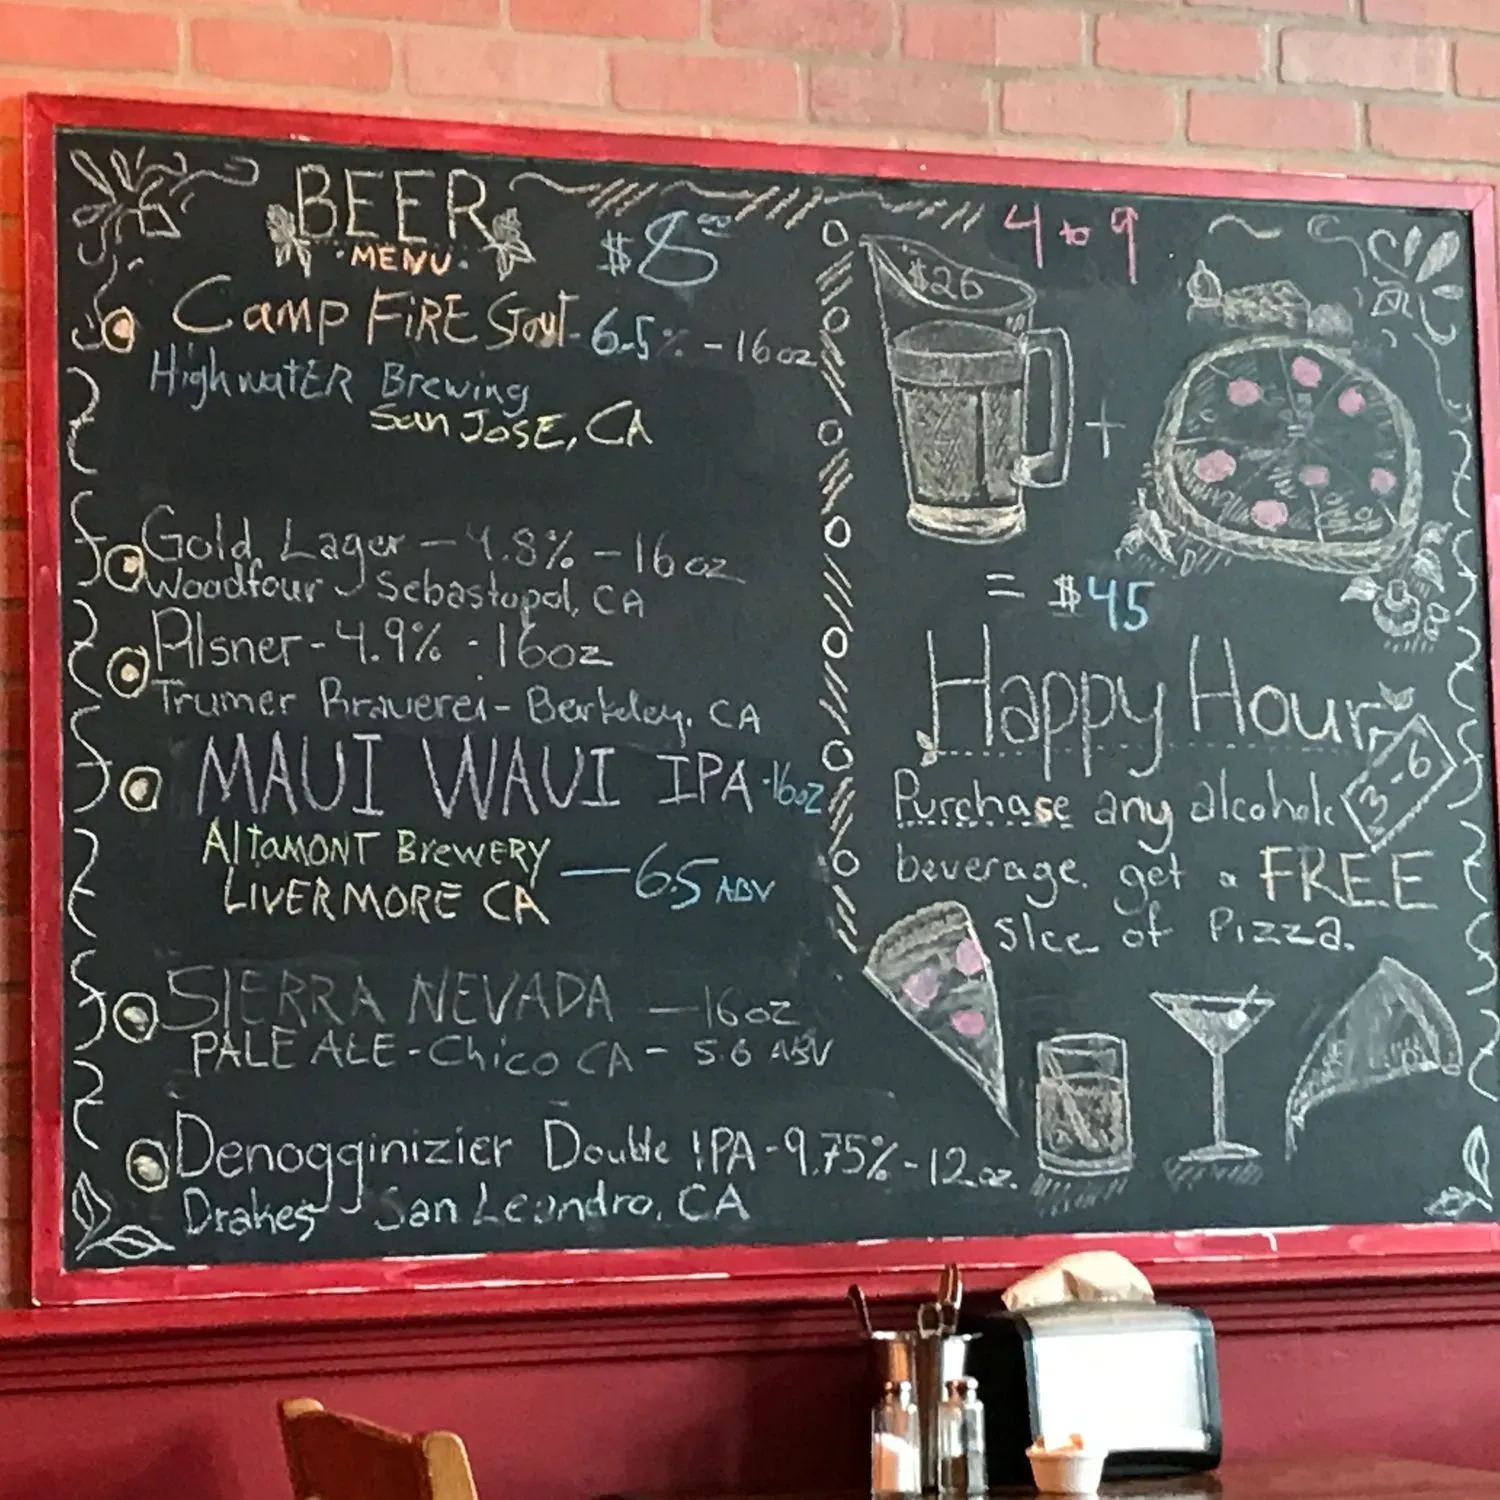 BEER
MENU
$8.00
CAMP FIRE Stout - 6.5% - 16oz
HighwatER Brewing
San JOSE, CA
Gold Lager - 4.8% - 16oz
Woodfour Sebastopol, CA
Pilsner - 4.9% - 16oz
Trumer Brauerei - Berkeley, CA
MAUI WAUI IPA - 16oz
AltAMONT BREWERY
LIVERMORE CA — 6.5 ABV
SIERRA NEVADA — 16oz
PALE ALE - Chico CA - 5.6 ABV
Denogginizier Double IPA - 9.75% - 12oz.
Drakes San Leandro, CA
4 to 9
$26
+
= $45
Happy Hour
3-6
Purchase any alcoholc
beverage. get a FREE
slce of Pizza.